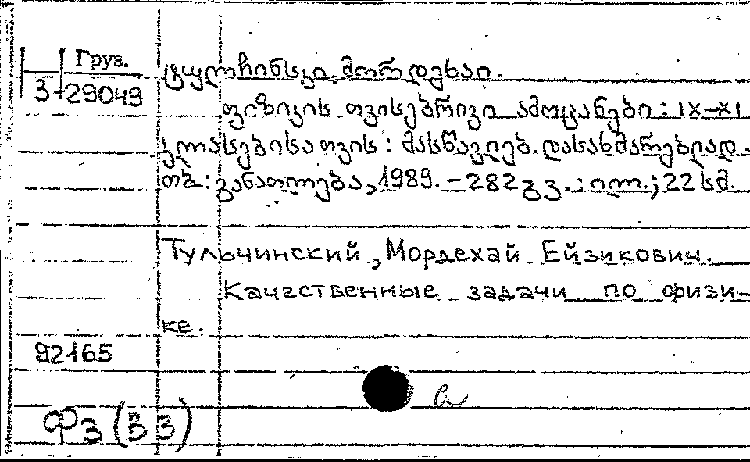 Груз.
3-29049
ტულჩინსკი მორდეხაი.
ფიზიკის თვისებრივი ამოცანები: IX-XI
კლასებისათვის: მასწავლებ. დასახმარებლად.
თბ.: განათლება, 1989. - 282 გვ.: ილ.; 22 სმ.
Тульчинский, Мордехай Ейзикович.
Качественные задачи по физи-
ке.
92165
ФЗ (33)